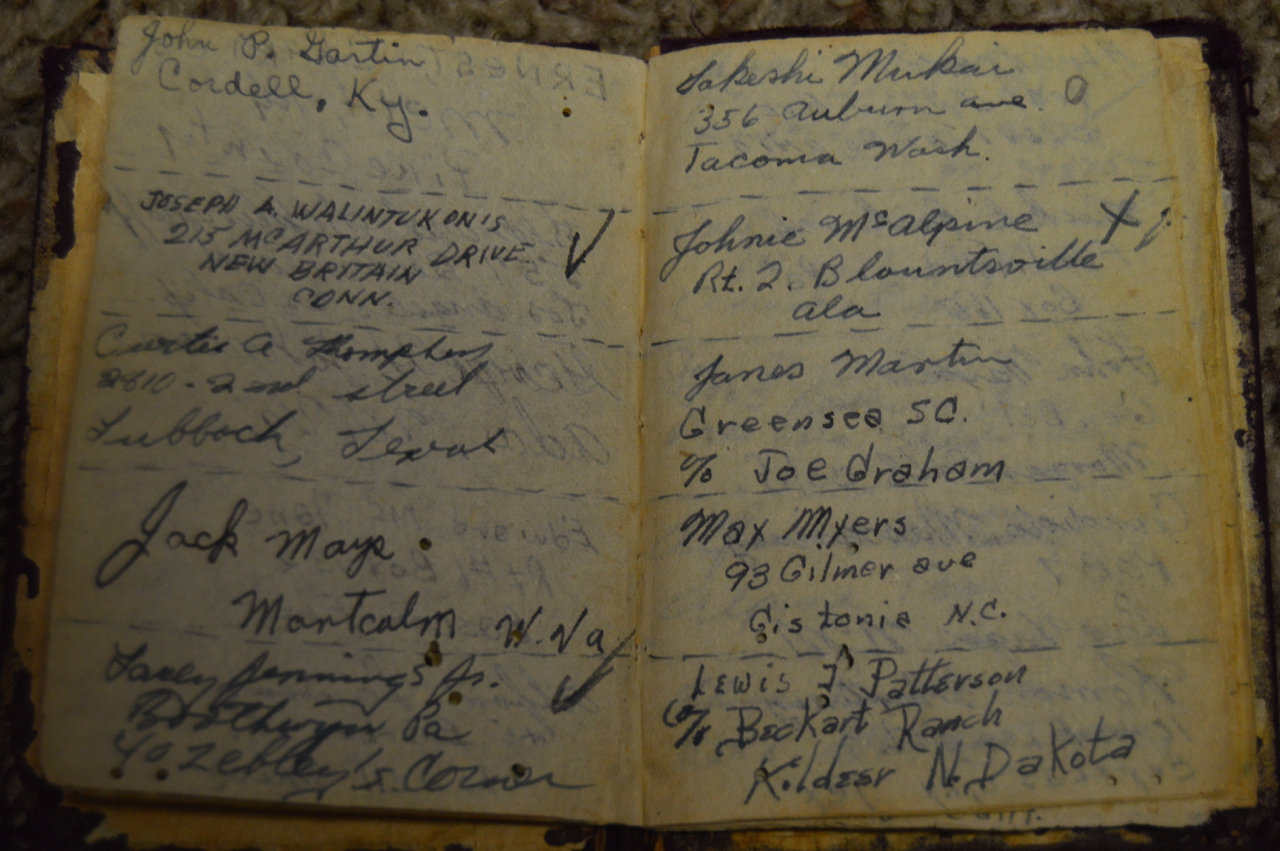 John P. Gartin
Cordell, Ky.
JOSEPH A. WALINTUKONIS
215 McARTHUR DRIVE
NEW BRITAIN
CONN.
Curtis A
2810 - 2nd street
Lubbock, Texas
Jack Mays
Montcalm W. Va
Laxey Jennings Jr.
Boothwyn Pa
c/o Zebley's Corner
Takeshi Mukai
356 Auburn ave. O
Tacoma Wash.
Johnie McAlpine X
Rt. 2. Blountsville
ala
James Martin
Greensea SC.
c/o Joe Graham
Max Myers
93 Gilmer ave
Gistonia N.C.
Lewis J Patterson
c/o Beckart Ranch
Kildeer N. Dakota